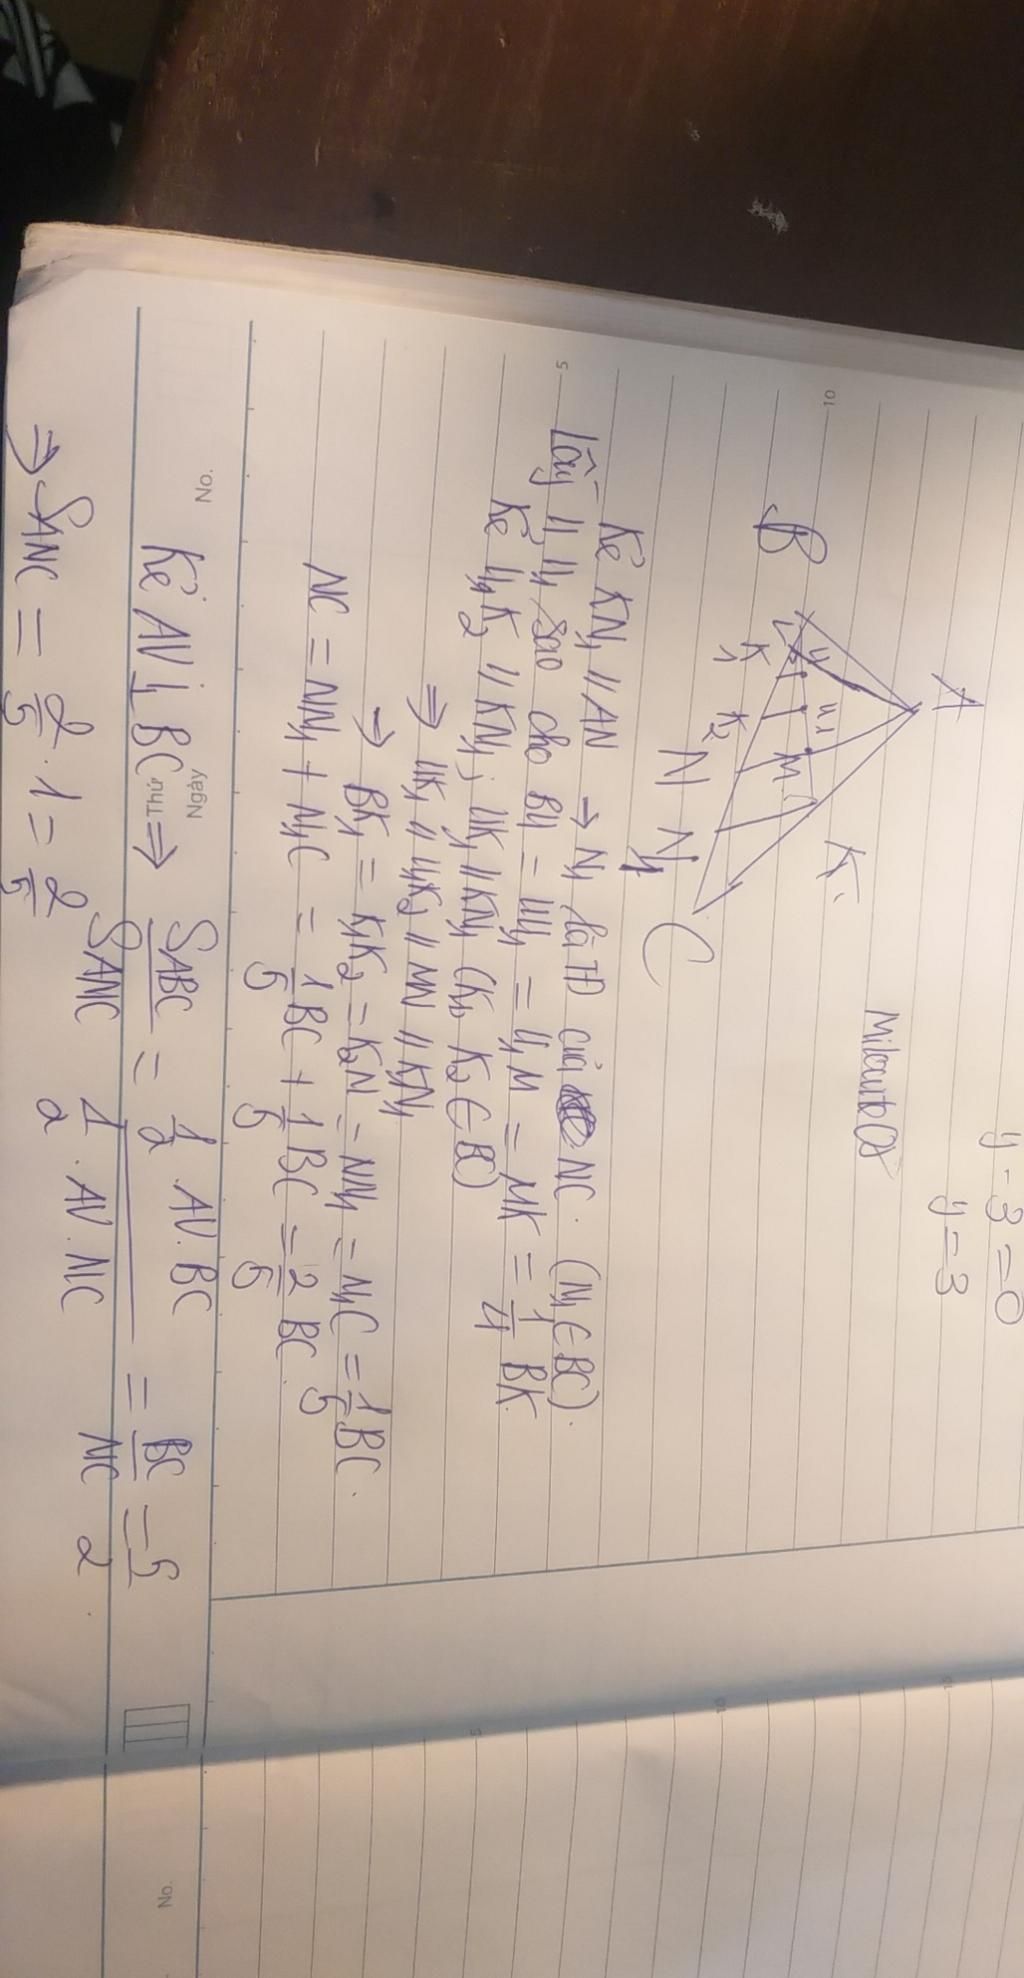 y - 3 = 0
y = 3
A
K
B
M
U
U1
K1
K2
N
N1
C
Kẻ KN1 // AN ⇒ N1 là TĐ của NC. (N1 ∈ BC).
Lấy U, U1 sao cho BU = UU1 = U1M = MK = 1/4 BK
Kẻ U1K2 // KN1; UK1 // KN1 (K1, K2 ∈ BC)
⇒ UK1 // U1K2 // MN // KN1
⇒ BK1 = K1K2 = K2N = NN1 = N1C = 1/5 BC.
NC = NN1 + N1C = 1/5 BC + 1/5 BC = 2/5 BC
No.
Thứ
Ngày
Kẻ AV ⊥ BC ⇒ SABC/SANC = (1/2 . AV. BC)/(1/2 . AV. NC) = BC/NC = 5/2
⇒ SANC = 2/5 . 1 = 2/5
5
10
No.
5
10
15